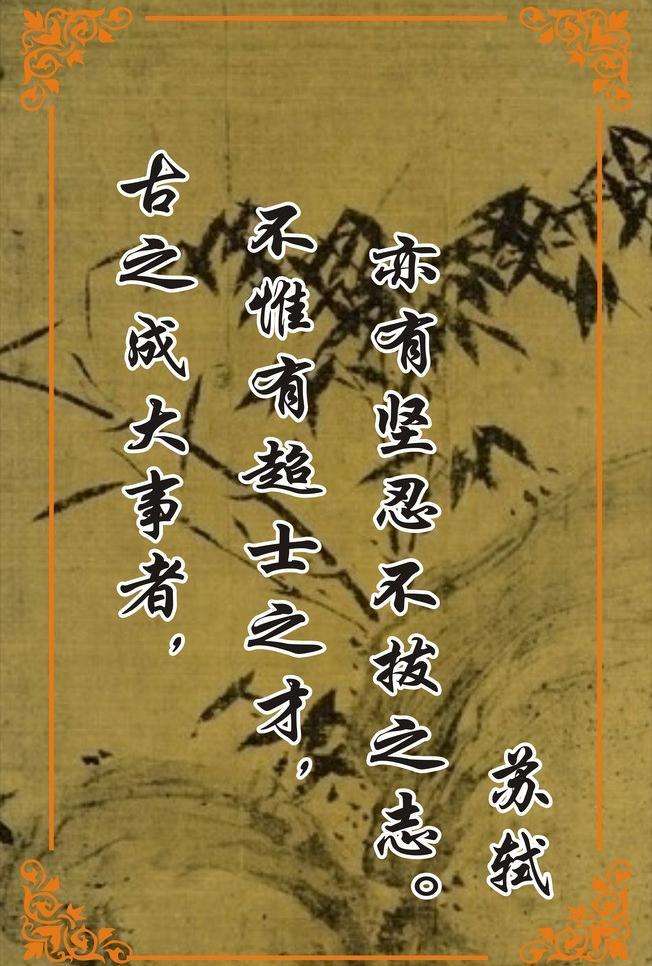 古之成大事者，
不惟有超士之才，
亦有坚忍不拔之志。
苏轼